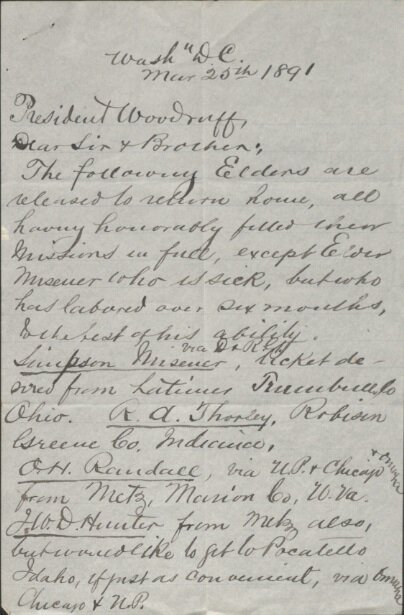 Wash'n D.C.
Mar 25th 1891
President Woodruff,
Dear Sir & Brother:,
The following Elders are
released to return home, all
having honorably filled their
Missions in full, except Elder
Misener who is sick, but who
has labored over six months,
to the best of his ability.
Simpson Misener, via D & R.G.W. ticket de-
sired from Latimer Trumbull Co
Ohio. R. A. Thorley, Robison
Greene Co. Indiana,
O. H. Randall, via U.P. & Chicago & Omaha
from Metz, Marion Co, W. Va.
J. W. D. Hunter from Metz also,
but would like to get to Pocatello
Idaho, if just as convenient, via Omaha
Chicago & N.P.